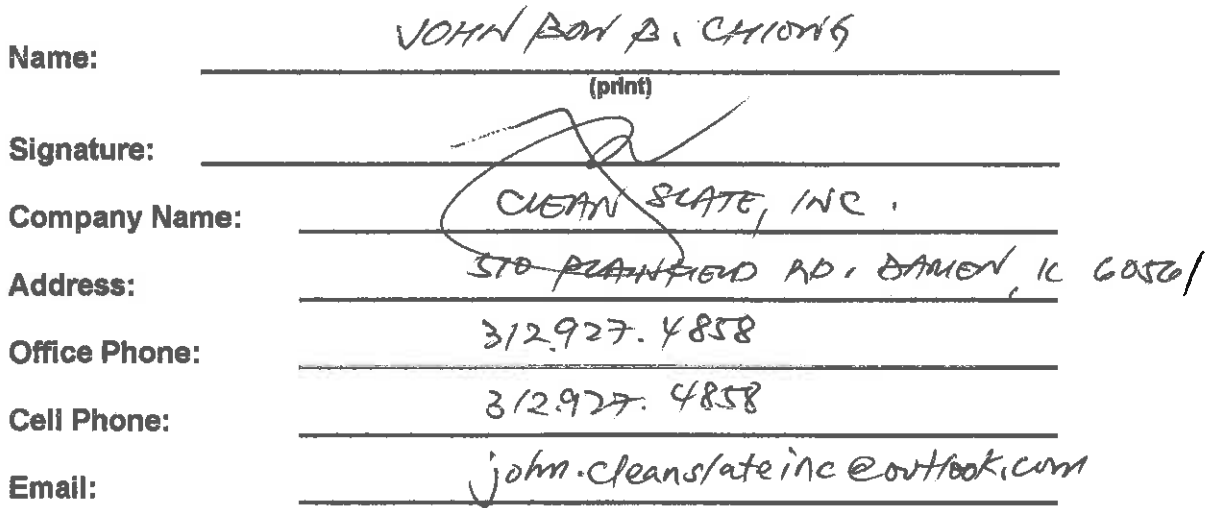 Name: JOHN BON B. CHIONG
(print)
Signature:
Company Name: CLEAN SLATE, INC.
Address: 510 PLAINFIELD RD. DARIEN, IL 60561
Office Phone: 312.927.4858
Cell Phone: 312.927.4858
Email: john.cleanslateinc@outlook.com